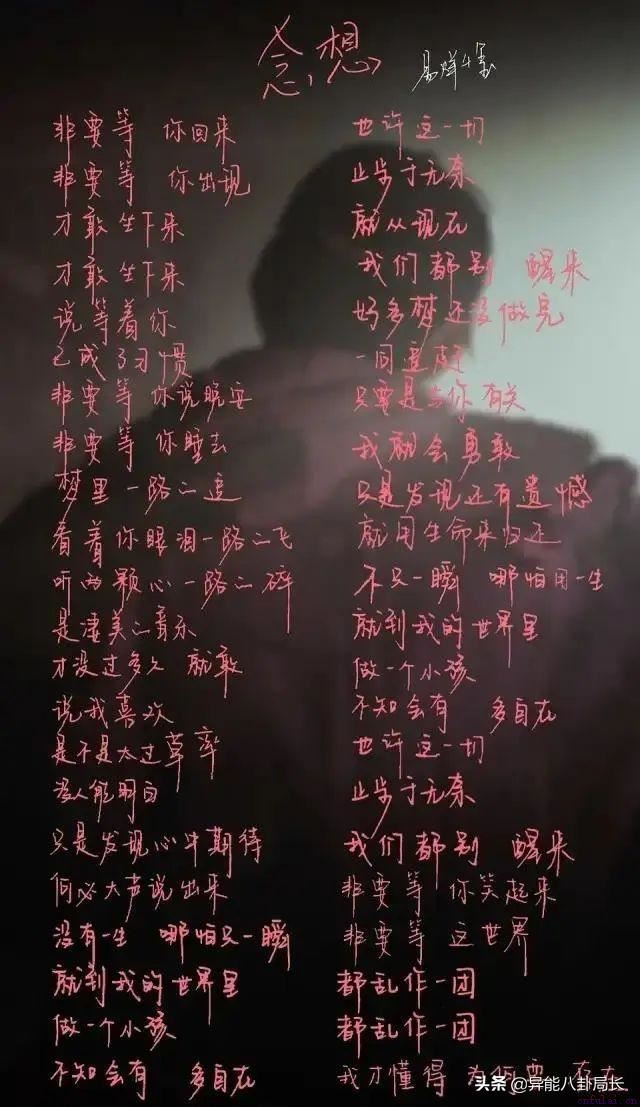 念想
易烊千玺
非要等 你回来
非要等 你出现
才敢坐下来
才敢坐下来
说等着你
已成了习惯
非要等 你说晚安
非要等 你睡去
梦里一路二追
看着你眼泪一路二飞
听两颗心一路二碎
是凄美二音乐
才没过多久 就敢
说我喜欢
是不是太过草率
没人能明白
只是发现心中期待
何必大声说出来
没有一生 哪怕只一瞬
就到我的世界里
做一个小孩
不知会有 多自在
也许这一切
止步于无奈
就从现在
我们都别 醒来
好多梦还没做完
一同追赶
只要是与你有关
我就会勇敢
只是发现还有遗憾
就用生命来归还
不只一瞬 哪怕用一生
就到我的世界里
做一个小孩
不知会有 多自在
也许这一切
止步于无奈
我们都别 醒来
非要等 你笑起来
非要等 这世界
都乱作一团
都乱作一团
我才懂得 为何要
头条 @异能八卦局长
cnfulai.cn